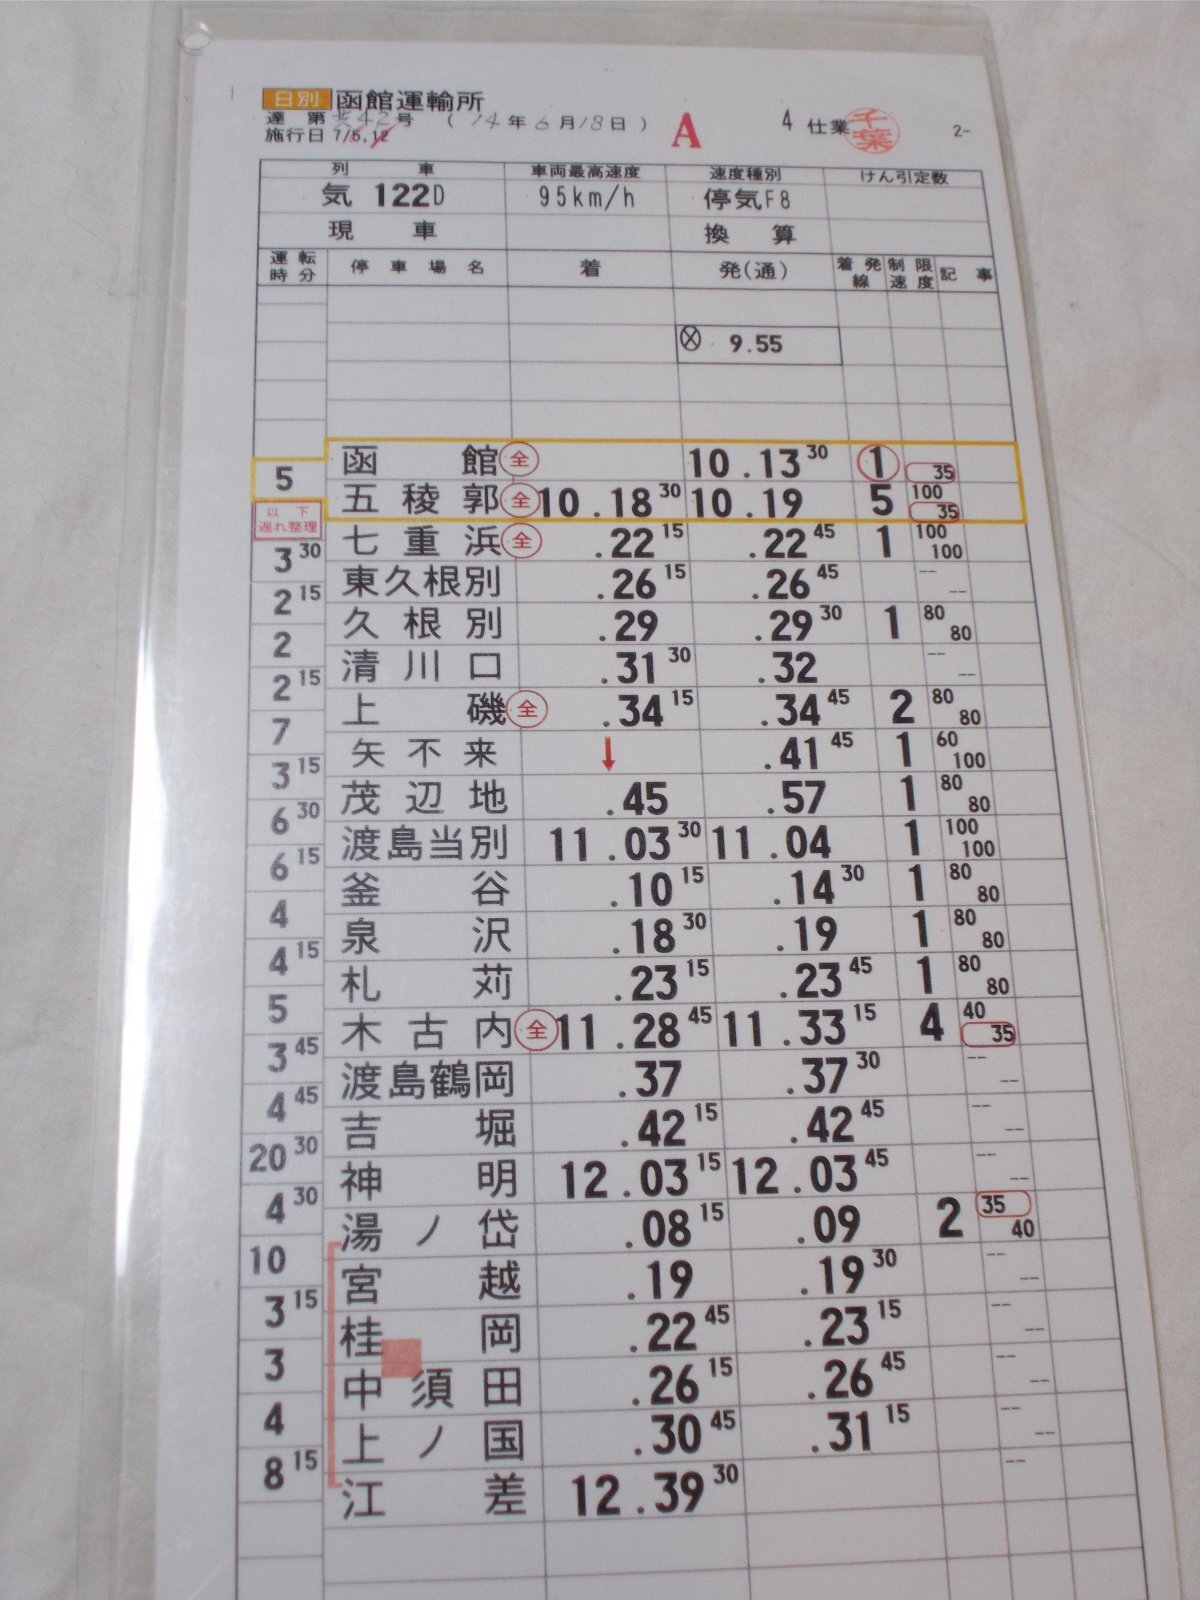 日別 函館運輸所
達 第 共42号 (14年6月18日) A 4 仕業 千葉 2-
施行日 7/5,12
列 車 車両最高速度 速度種別 けん引定数
気 122D 95km/h 停気F8
現 車 換 算
運転時分 停 車 場 名 着 発(通) 着発線 制限速度 記 事
9.55
函 館 全 10.13 30 1 35
5
五 稜 郭 全 10.18 30 10.19 5 100 35
以下遅れ整理
3 30
七 重 浜 全 .22 15 .22 45 1 100 100
2 15
東久根別 .26 15 .26 45 -- --
2
久 根 別 .29 .29 30 1 80 80
2 15
清 川 口 .31 30 .32 -- --
7
上 磯 全 .34 15 .34 45 2 80 80
3 15
矢 不 来 ↓ .41 45 1 60 100
6 30
茂 辺 地 .45 .57 1 80 80
6 15
渡島当別 11.03 30 11.04 1 100 100
4
釜 谷 .10 15 .14 30 1 80 80
4 15
泉 沢 .18 30 .19 1 80 80
5
札 苅 .23 15 .23 45 1 80 80
3 45
木 古 内 全 11.28 45 11.33 15 4 40 35
4 45
渡島鶴岡 .37 .37 30 -- --
20 30
吉 堀 .42 15 .42 45 -- --
4 30
神 明 12.03 15 12.03 45 -- --
10
湯 ノ 岱 .08 15 .09 2 35 40
3 15
宮 越 .19 .19 30 -- --
3
桂 岡 .22 45 .23 15 -- --
4
中 須 田 .26 15 .26 45 -- --
8 15
上 ノ 国 .30 45 .31 15 -- --
江 差 12.39 30 --